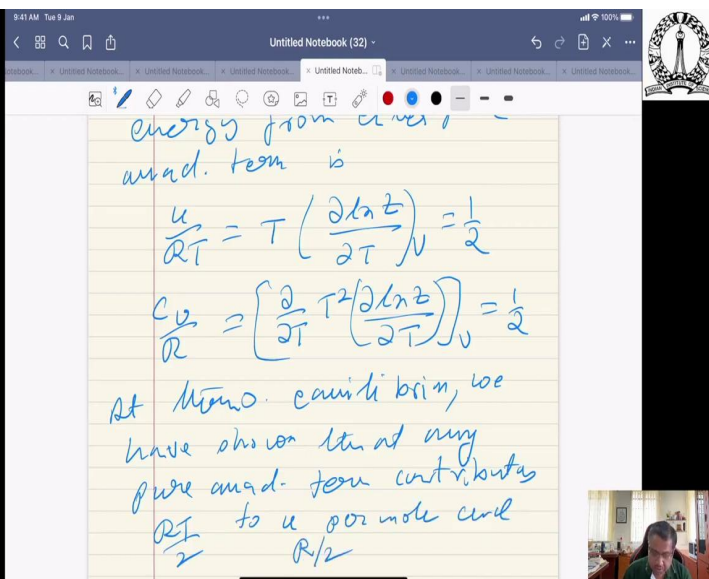 9:41 AM Tue 9 Jan
100%
Untitled Notebook (32)
Untitled Notebook...
Untitled Notebook...
Untitled Notebook...
Untitled Noteb...
Untitled Notebook...
Untitled Notebook...
Untitled Notebook...
energy from
quad. term is
u/RT = T (∂ln z/∂T)_V = 1/2
C_v/R = [∂/∂T T² (∂ln z/∂T)]_V = 1/2
At equilibrium, we
have shown that any
pure quad. term contributes
RT/2 to u per mole and
R/2